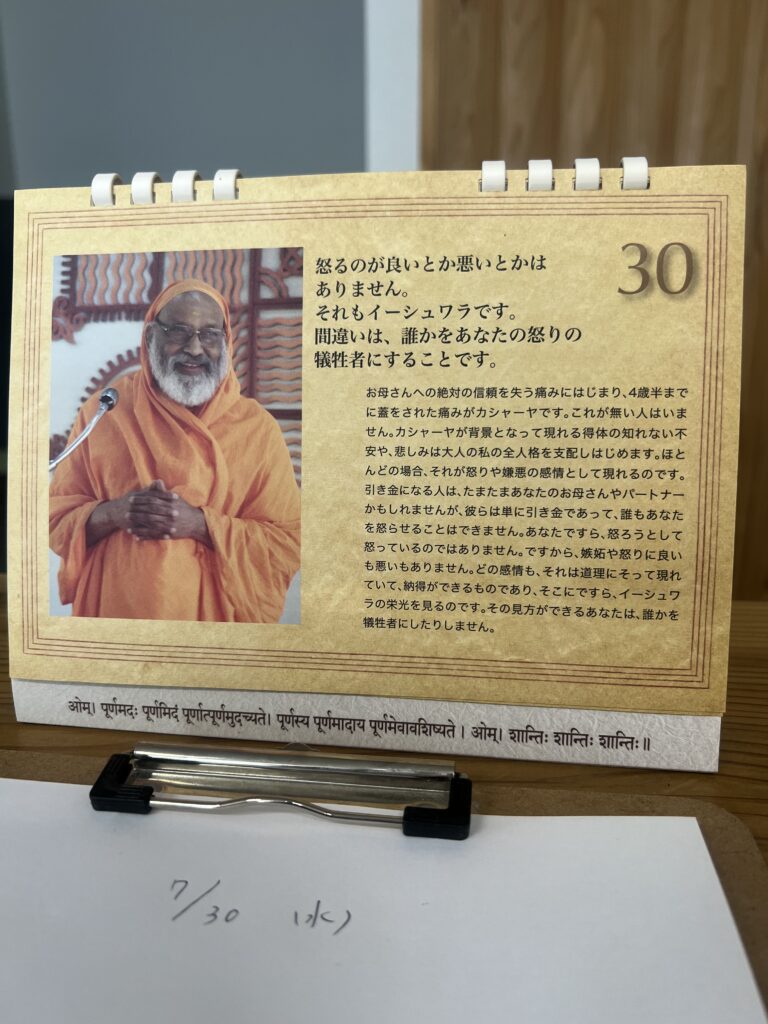 30
怒るのが良いとか悪いとかは
ありません。
それもイーシュワラです。
間違いは、誰かをあなたの怒りの
犠牲者にすることです。
お母さんへの絶対の信頼を失う痛みにはじまり、4歳半まで
に蓋をされた痛みがカシャーヤです。これが無い人はいま
せん。カシャーヤが背景となって現れる得体の知れない不
安や、悲しみは大人の私の全人格を支配しはじめます。ほと
んどの場合、それが怒りや嫌悪の感情として現れるのです。
引き金になる人は、たまたまあなたのお母さんやパートナー
かもしれませんが、彼らは単に引き金であって、誰もあなた
を怒らせることはできません。あなたですら、怒ろうとして
怒っているのではありません。ですから、嫉妬や怒りに良い
も悪いもありません。どの感情も、それは道理にそって現れ
ていて、納得ができるものであり、そこにですら、イーシュワ
ラの栄光を見るのです。その見方ができるあなたは、誰かを
犠牲者にしたりしません。
ओम्। पूर्णमदः पूर्णमिदं पूर्णात्पूर्णमुदच्यते। पूर्णस्य पूर्णमादाय पूर्णमेवावशिष्यते। ओम्। शान्तिः शान्तिः शान्तिः॥
7/30 (水)